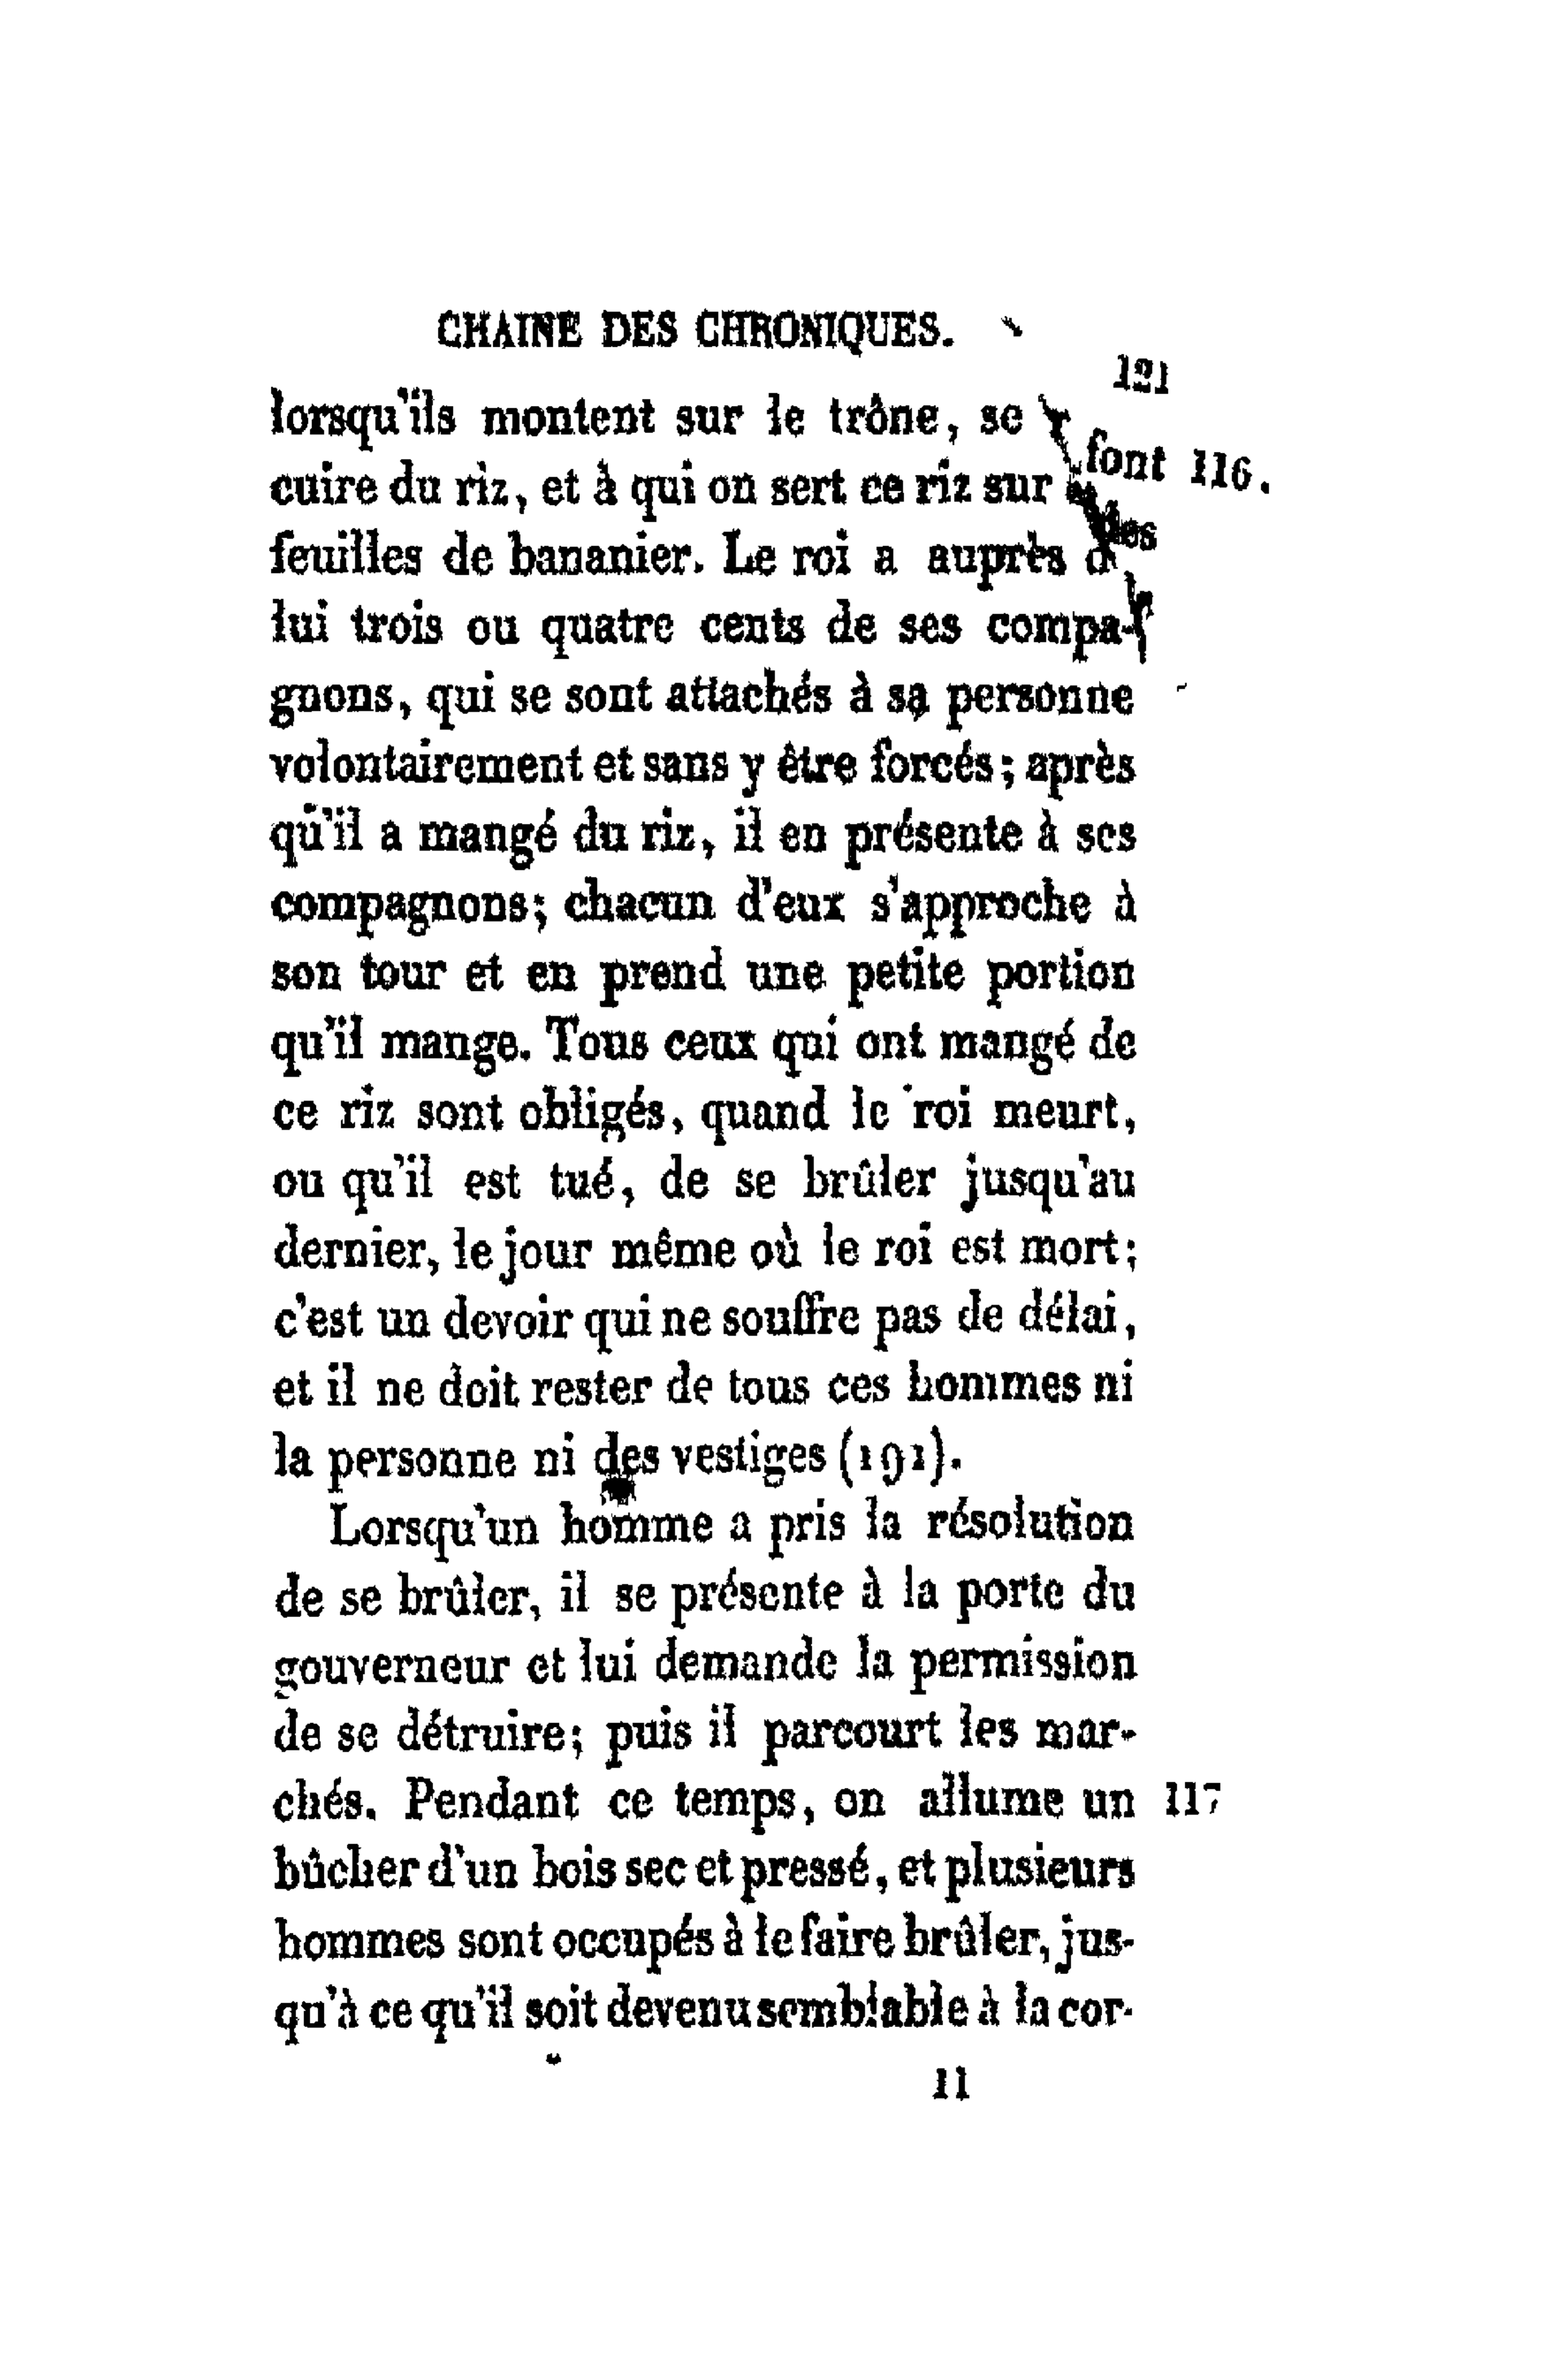 CHAINE DES CHRONIQUES.
121
lorsqu'ils montent sur le trône, se font 116.
cuire du riz, et à qui on sert ce riz sur des
feuilles de bananier. Le roi a auprès de
lui trois ou quatre cents de ses compa-
gnons, qui se sont attachés à sa personne
volontairement et sans y être forcés; après
qu'il a mangé du riz, il en présente à ses
compagnons; chacun d'eux s'approche à
son tour et en prend une petite portion
qu'il mange. Tous ceux qui ont mangé de
ce riz sont obligés, quand le roi meurt,
ou qu'il est tué, de se brûler jusqu'au
dernier, le jour même où le roi est mort;
c'est un devoir qui ne souffre pas de délai,
et il ne doit rester de tous ces hommes ni
la personne ni des vestiges (191).
Lorsqu'un homme a pris la résolution
de se brûler, il se présente à la porte du
gouverneur et lui demande la permission
de se détruire; puis il parcourt les mar-
chés. Pendant ce temps, on allume un 117
bûcher d'un bois sec et pressé, et plusieurs
hommes sont occupés à le faire brûler, jus-
qu'à ce qu'il soit devenu semblable à la cor-
11